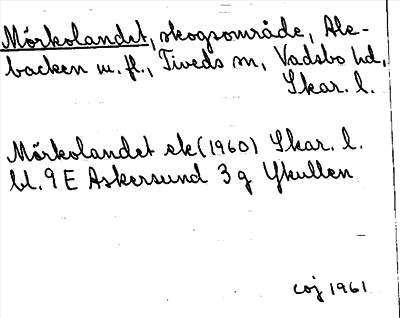 Mörkolandet, skogsområde, Ale-
backen m. fl., Tiveds sn, Vadsbo hd,
Skar. l.
Mörkolandet ek (1960) Skar. l.
bl. 9 E Askersund 3 g Ykullen
coj 1961